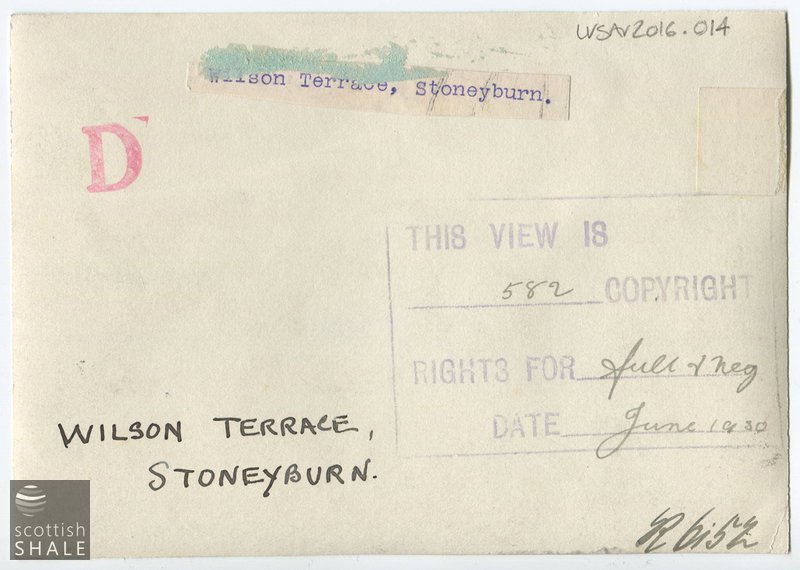 LVSAV2016.014
Wilson Terrace, Stoneyburn.
D
THIS VIEW IS
582 COPYRIGHT
RIGHTS FOR full & Neg
DATE June 1930
WILSON TERRACE,
STONEYBURN.
R 6152
scottish
SHALE